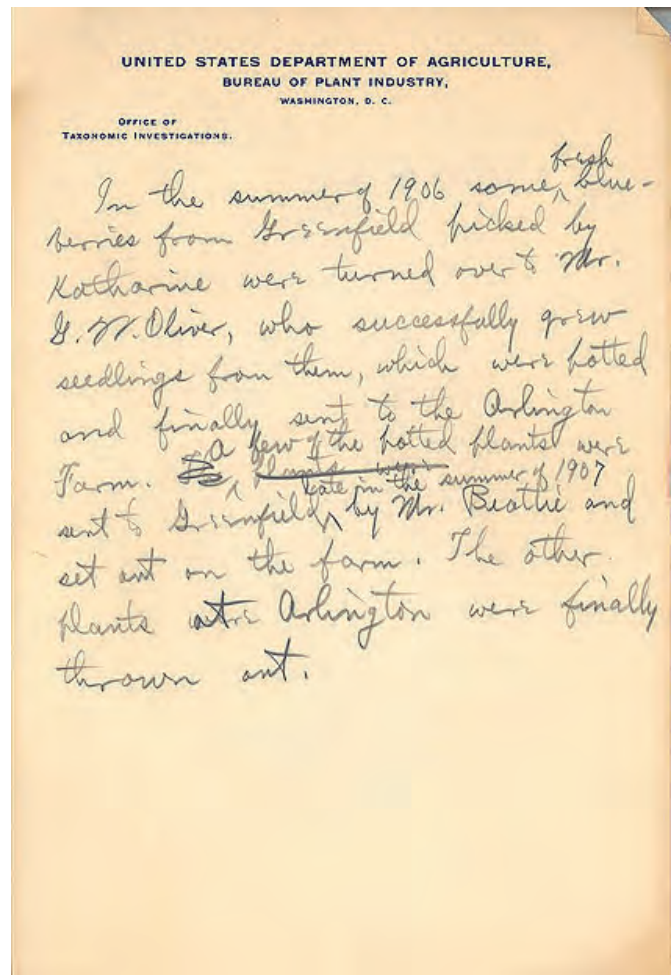 UNITED STATES DEPARTMENT OF AGRICULTURE,
BUREAU OF PLANT INDUSTRY,
WASHINGTON, D. C.
OFFICE OF
TAXONOMIC INVESTIGATIONS.
fresh
In the summer of 1906 some blue-
berries from Greenfield picked by
Katharine were turned over to Mr.
G. W. Oliver, who successfully grew
seedlings from them, which were potted
and finally sent to the Arlington
A few of the potted plants were
Farm. plants were
late in the summer of 1907
sent to Greenfield by Mr. Beattie and
set out on the farm. The other
plants at Arlington were finally
thrown out.